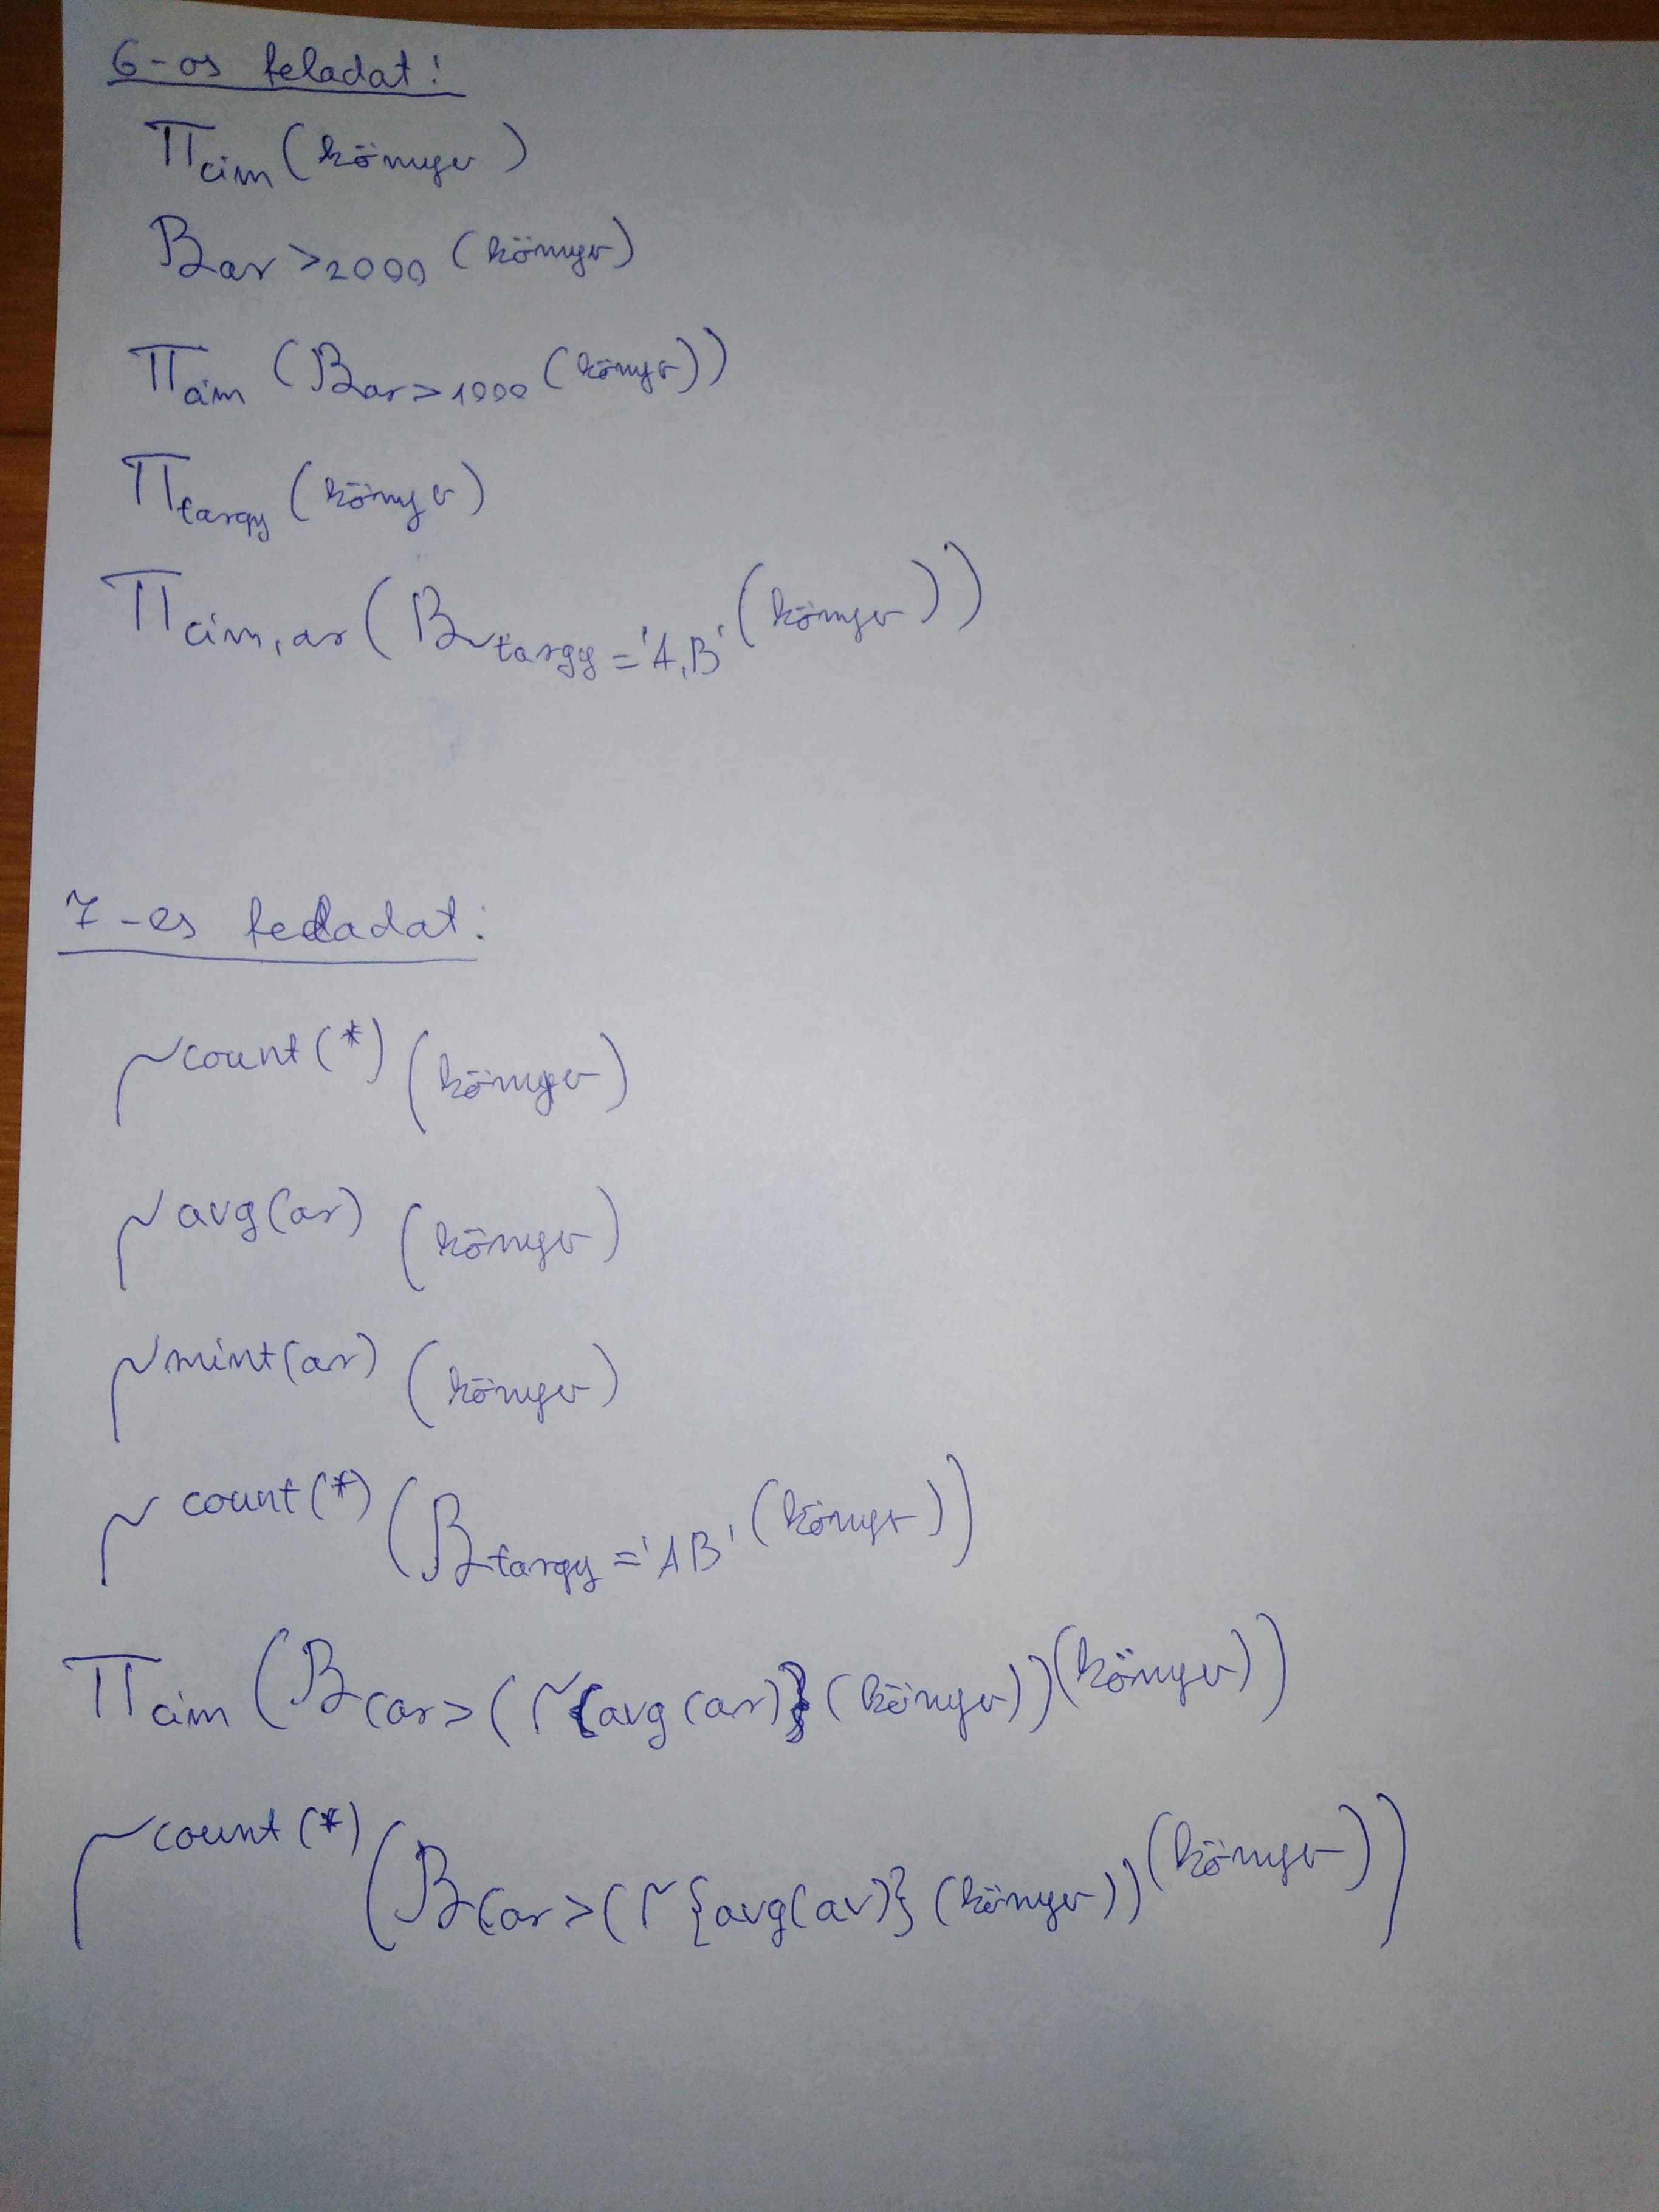 6-os feladat:
π cim (könyv)
B ar > 2000 (könyv)
π cim (B ar > 1000 (könyv))
π targy (könyv)
π cim, ar (B targy = 'A,B' (könyv))
7-es feladat:
Γ count(*) (könyv)
Γ avg(ar) (könyv)
Γ mint(ar) (könyv)
Γ count(*) (B targy = 'AB' (könyv))
π cim (B (ar > (Γ {avg(ar)} (könyv)) (könyv))
Γ count(*) (B (ar > (Γ {avg(ar)} (könyv)) (könyv))